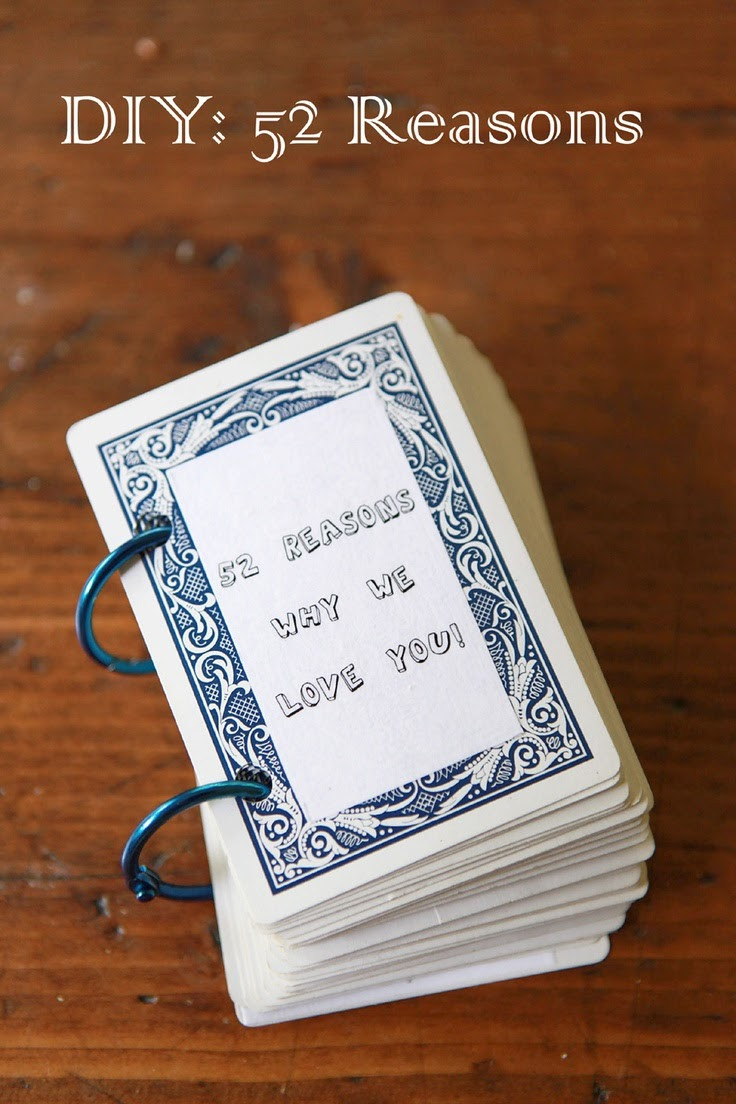 DIY: 52 Reasons
52 REASONS
WHY WE
LOVE YOU!